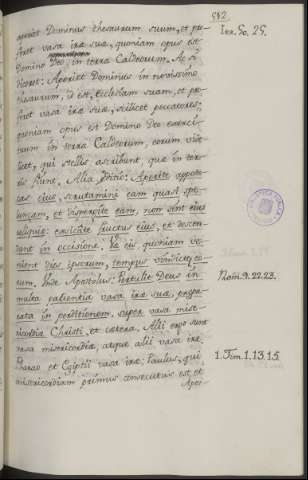 882
aperiet Dominus thesaurum suum, et pro-
feret vasa iræ suæ, quoniam opus est
Domino Deo, in terra Caldeorum. Ac si
diceret: Aperiet Dominus in novissimo
thesaurum, id est, Ecclesiam suam, et pro-
feret vasa iræ suæ, scilicet peccatores;
quoniam opus est Domino Deo exerci-
tuum in terra Caldeorum, eorum vide-
licet, qui stellis ascribunt, quæ in ter-
ris fiunt. Alia editio: Aperite apote-
cas eius, scrutamini eam quasi spe-
luncam, et disperdite eam, non sint eius
reliquiæ: exsicate fructus eius, et descen-
dant in occisione. Væ eis quoniam ve-
nient dies ipsorum, tempus vindictæ eo-
rum. Unde Apostolus: Pertulit Deus in
multa patientia vasa iræ suæ, præpa-
rata in perditionem, super vasa mise-
ricordiæ Christi, et cætera. Alii ergo sunt
vasa misericordiæ, atque alii vasa iræ.
Farao et Egiptii vasa iræ: Paulus, qui
misericordiam primus consecutus est, et
Apos-
Ier. 50. 25.
Rom. 9. 22. 23.
1. Tim. 1. 13. 15.